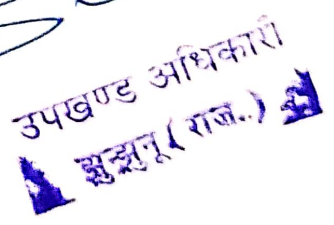 उपखण्ड अधिकारी
झुन्झुनू (राज..)